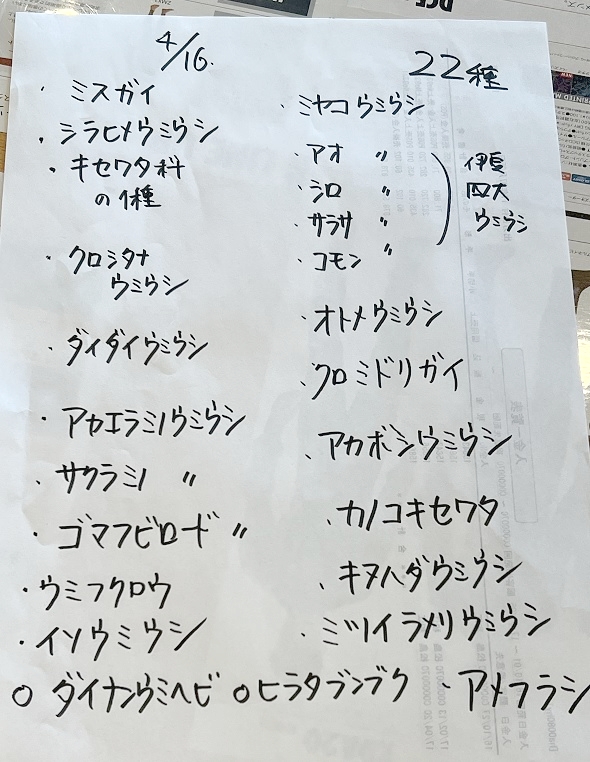 4/16.
22種
・ミスガイ
・シラヒメウミウシ
・キセワタ科
の1種
・クロシタナシ
ウミウシ
・ダイダイウミウシ
・アカエラミノウミウシ
・サクラミノ 〃
・ゴマフビロード 〃
・ウミフクロウ
・イソウミウシ
・ミヤコウミウシ
・アオ 〃
・シロ 〃
・サラサ 〃
・コモン 〃
伊豆
四大
ウミウシ
・オトメウミウシ
・クロミドリガイ
・アカボシウミウシ
・カノコキセワタ
・キヌハダウミウシ
・ミツイラメリウミウシ
○ダイナンウミヘビ ○ヒラタブンブク ・アメフラシ